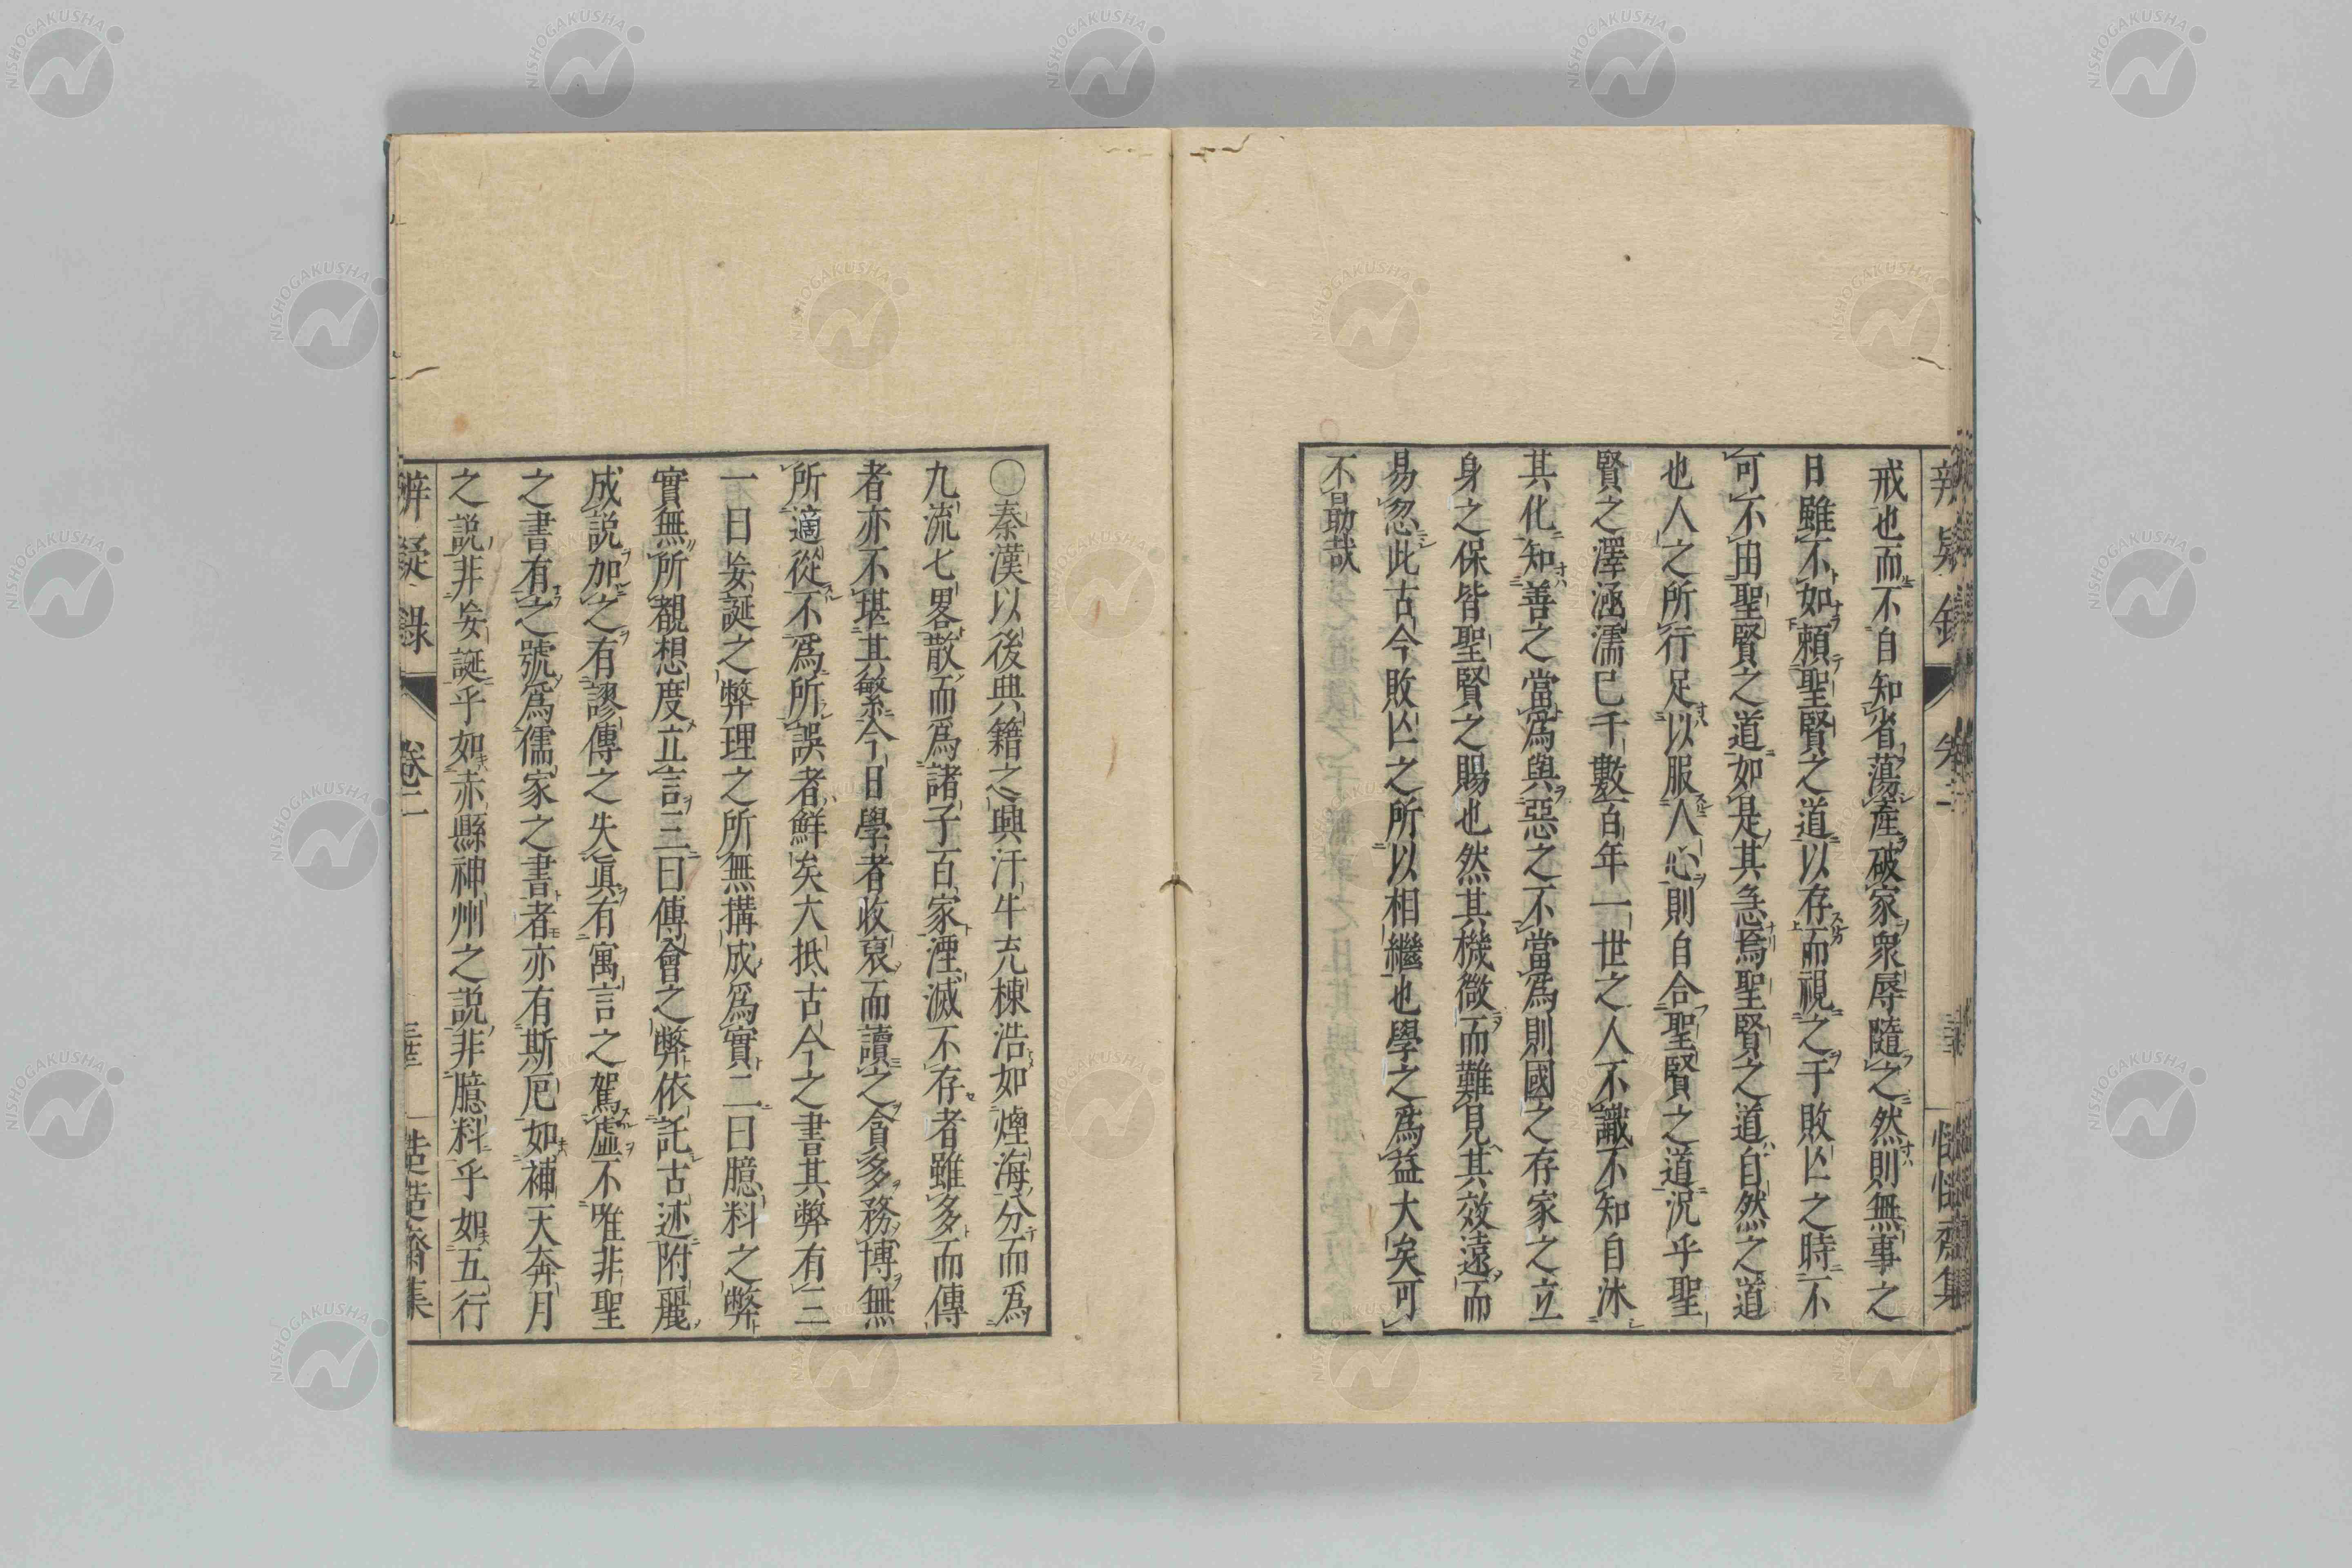 戒也而不自知省蕩產破家衆辱隨之然則無事之
日雖不如頼聖賢之道以存而視之于敗亾之時不
可不由聖賢之道如是其急焉聖賢之道自然之道
也人之所行足以服人心則自合聖賢之道况乎聖
賢之澤涵濡已千數百年一世之人不識不知自沐
其化知善之當爲與惡之不當爲則國之存家之立
身之保皆聖賢之賜也然其機微而難見其效遠而
易忽此古今敗亾之所以相繼也學之爲益大矣可
不勗哉
〇秦漢以後典籍之興汗牛充棟浩如煙海分而爲
九流七畧散而爲諸子百家湮滅不存者雖多而傳
者亦不堪其繁今日學者收裒而讀之貪多務博無
所適從不爲所誤者鮮矣大抵古今之書其弊有三
一曰妄誕之弊理之所無搆成爲實二曰臆料之弊
實無所覩想度立言三曰傳會之弊依託古述附麗
成説加之有謬傳之失眞有寓言之駕虛不唯非聖
之書有之號爲儒家之書者亦有斯厄如補天奔月
之説非妄誕乎如赤縣神州之説非臆料乎如五行
辨疑録 卷二 慥慥齋集
NISHOGAKUSHA